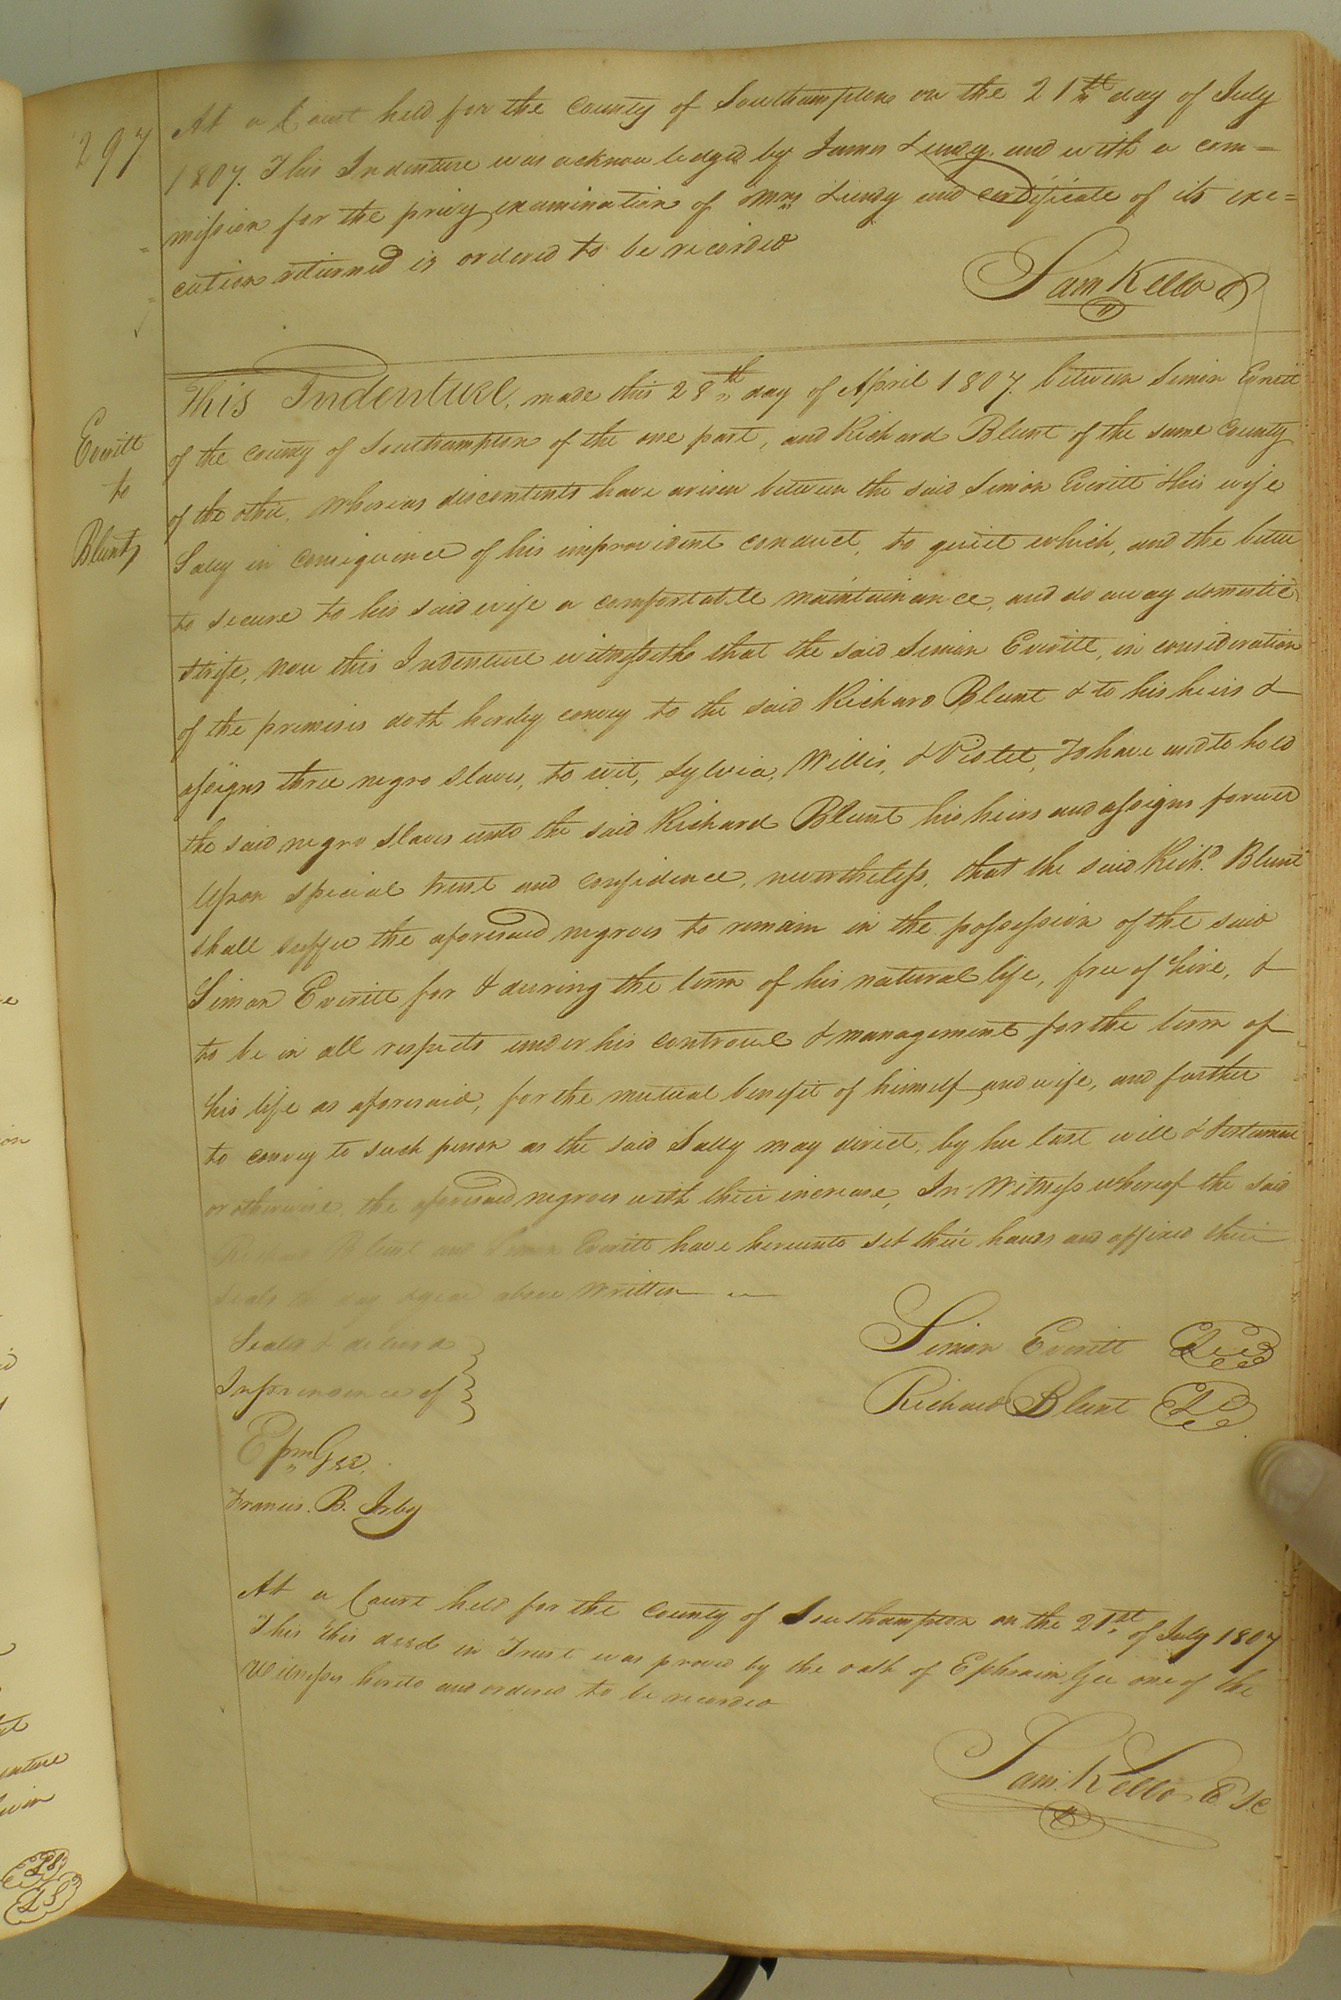 297
At a Court held for the County of Southampton on the 21st day of July
1807. This Indenture was acknowledged by James Lundy and with a com=
mission for the privy examination of Mrs Lundy and certificate of its exe=
cution returned is ordered to be recorded
Sam Kello
Everitt
to
Blunt
This Indenture, made this 28th day of April 1807. between Simon Everitt
of the County of Southampton of the one part, and Richard Blunt of the same County
of the other. Whereas discontents have arisen between the said Simon Everitt & his wife
Sally in consequence of his improvident conduct, to quiet which, and the better
to secure to his said wife a comfortable maintainance, and do away domestic
strife, now this Indenture witnesseth that the said Simon Everitt, in consideration
of the premises doth hereby convey to the said Richard Blunt & to his heirs &
assigns three negro slaves, to wit, Sylvia, Willis, & Violet, To have and to hold
the said negro slaves unto the said Richard Blunt his heirs and assigns forever
Upon special trust and confidence, nevertheless, that the said Richd. Blunt
shall suffer the aforesaid negroes to remain in the possession of the said
Simon Everitt for & during the term of his natural life, free of hire, &
to be in all respects under his controul & management for the term of
his life as aforesaid, for the mutual benefit of himself and wife, and further
to convey to such person as the said Sally may direct, by her last will & testament
or otherwise, the aforesaid negroes with their increase, In Witness whereof the said
Richard Blunt and Simon Everitt have hereunto set their hands and affixed their
seals the day & year above written
Seald & deliverd
In presence of
Simon Everitt LS
Richard Blunt LS
Epm Gee.
Francis. B. Irby
At a Court held for the County of Southampton on the 21st of July 1807
This this deed in Trust was proved by the oath of Ephraim Gee one of the
Witnesses hereto and ordered to be recorded
Sam. Kello C. S.C
LS
LS